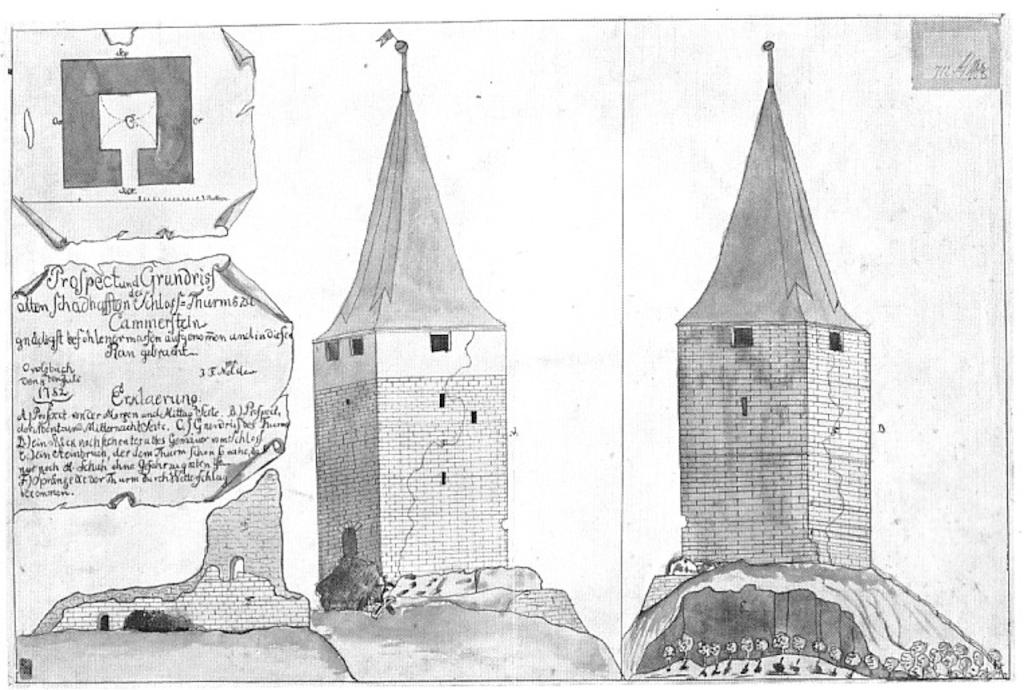 Sep.
Oc.
C.
Or.
Prospect und Grundriss
des
alten schadhafften Schloss=Thurms zu
Cammerstein
gnädigst befohlener massen aufgenomen und in diesen
Plan gebracht
1782
Erklaerung:
A.) Prospect von der Morgen und Mittag Seite. B.) Prospect,
der Abent und Mitternacht Seite. C.) Grundriss des Thurms
D.) ein Stück noch stehentes altes Gemäuer vom Schloss
E.) ein Steinbruch, der dem Thurm schon so nahe, das
nur noch Schuh ohne Gefahr zu graben
F.) Sprünge die der Thurm durch Wetterschlag
bekommen.
A.
B